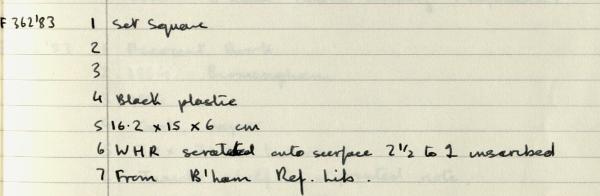 F 362'83 1 Set Square
2
3
4 Black plastic
5 16.2 x 15 x 6 cm
6 WHR scratched onto surface 2 1/2 to 1 inscribed
7 From B'ham Ref. Lib.